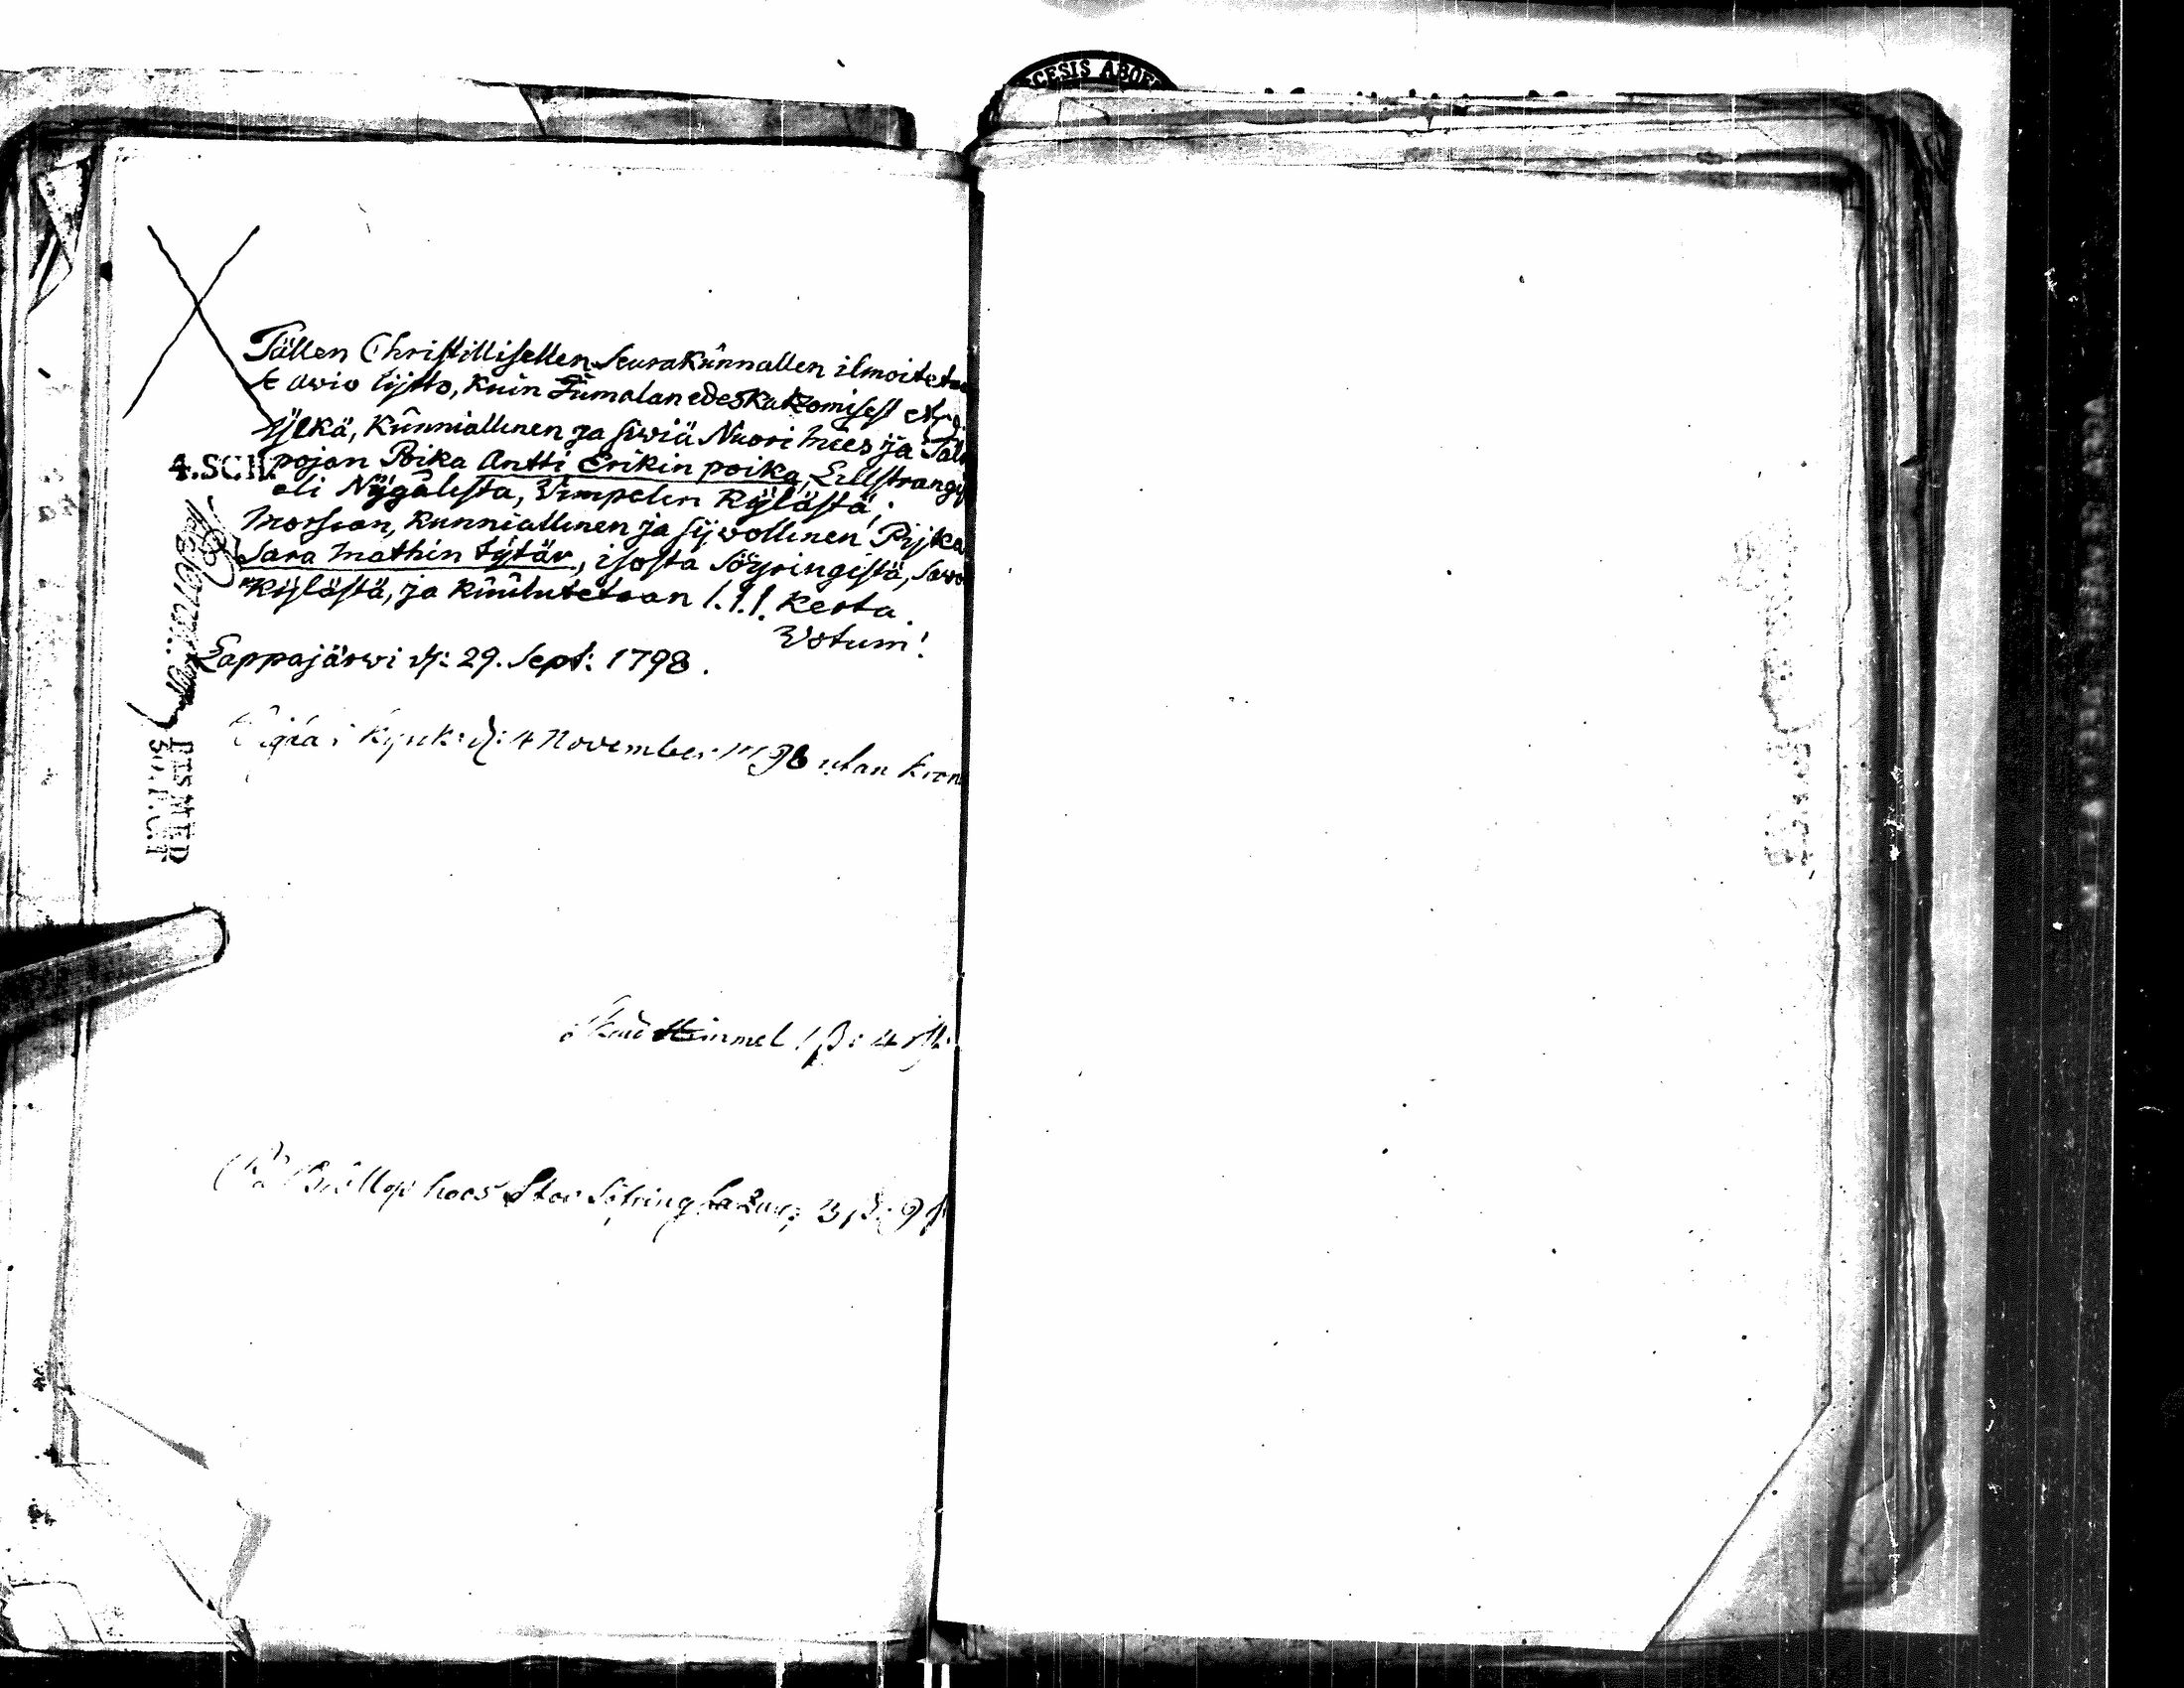 CESIS ABOE
Tällen Christillisellen Seurakûnnallen ilmoiteta
se awio lijtto, kuin Jumalan edeskatzomisest
ylkä, Kûnniallinen ja siwiä Nuori Mies ja Talo
pojan Poika Antti Erikin poika, Lillstrangi
4.SCH.
eli Nÿgålista, Vimpelin Kylästä;
Morsian, Kunniallinen ja sijwollinen Pijka
Sara Mathin tÿtär, isosta Söyringistä, Sawo
kylästä, ja kûûlutetaan 1.1.1. kerta.
Votum!
Lappajärwi d: 29. Sept: 1798.
Vigda i Kyrk: d: 4 November 1798 utan kron
Himmel 1 β: 4
På Bröllop hoos Stor Söyring 3 β: 9